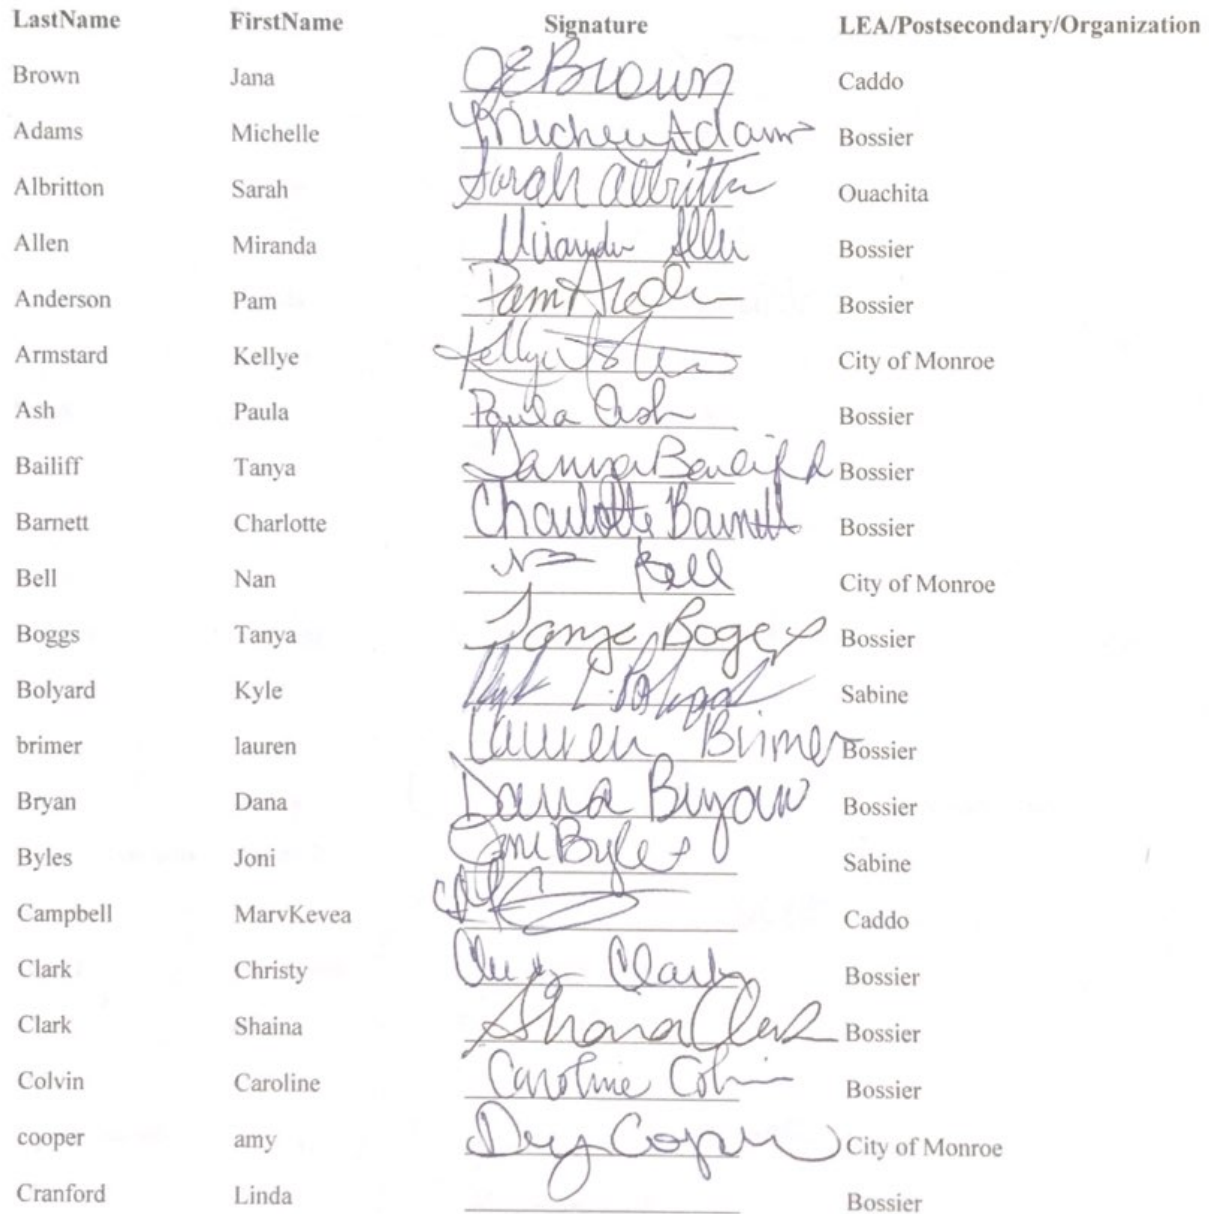 LastName FirstName Signature LEA/Postsecondary/Organization
Brown Jana JEBrown Caddo
Adams Michelle Adams Bossier
Albritton Sarah Sarah Albritton Ouachita
Allen Miranda Miranda Allen Bossier
Anderson Pam Pam Bossier
Armstard Kellye Kellye City of Monroe
Ash Paula Paula Ash Bossier
Bailiff Tanya Bossier
Barnett Charlotte Charlotte Barnett Bossier
Bell Nan Bell City of Monroe
Boggs Tanya Tanya Boggs Bossier
Bolyard Kyle Kyle Sabine
brimer lauren Lauren Brimer Bossier
Bryan Dana Dana Bryan Bossier
Byles Joni Joni Byles Sabine
Campbell MarvKevea Caddo
Clark Christy Clark Bossier
Clark Shaina Clark Bossier
Colvin Caroline Caroline Colvin Bossier
cooper amy Cooper City of Monroe
Cranford Linda Bossier